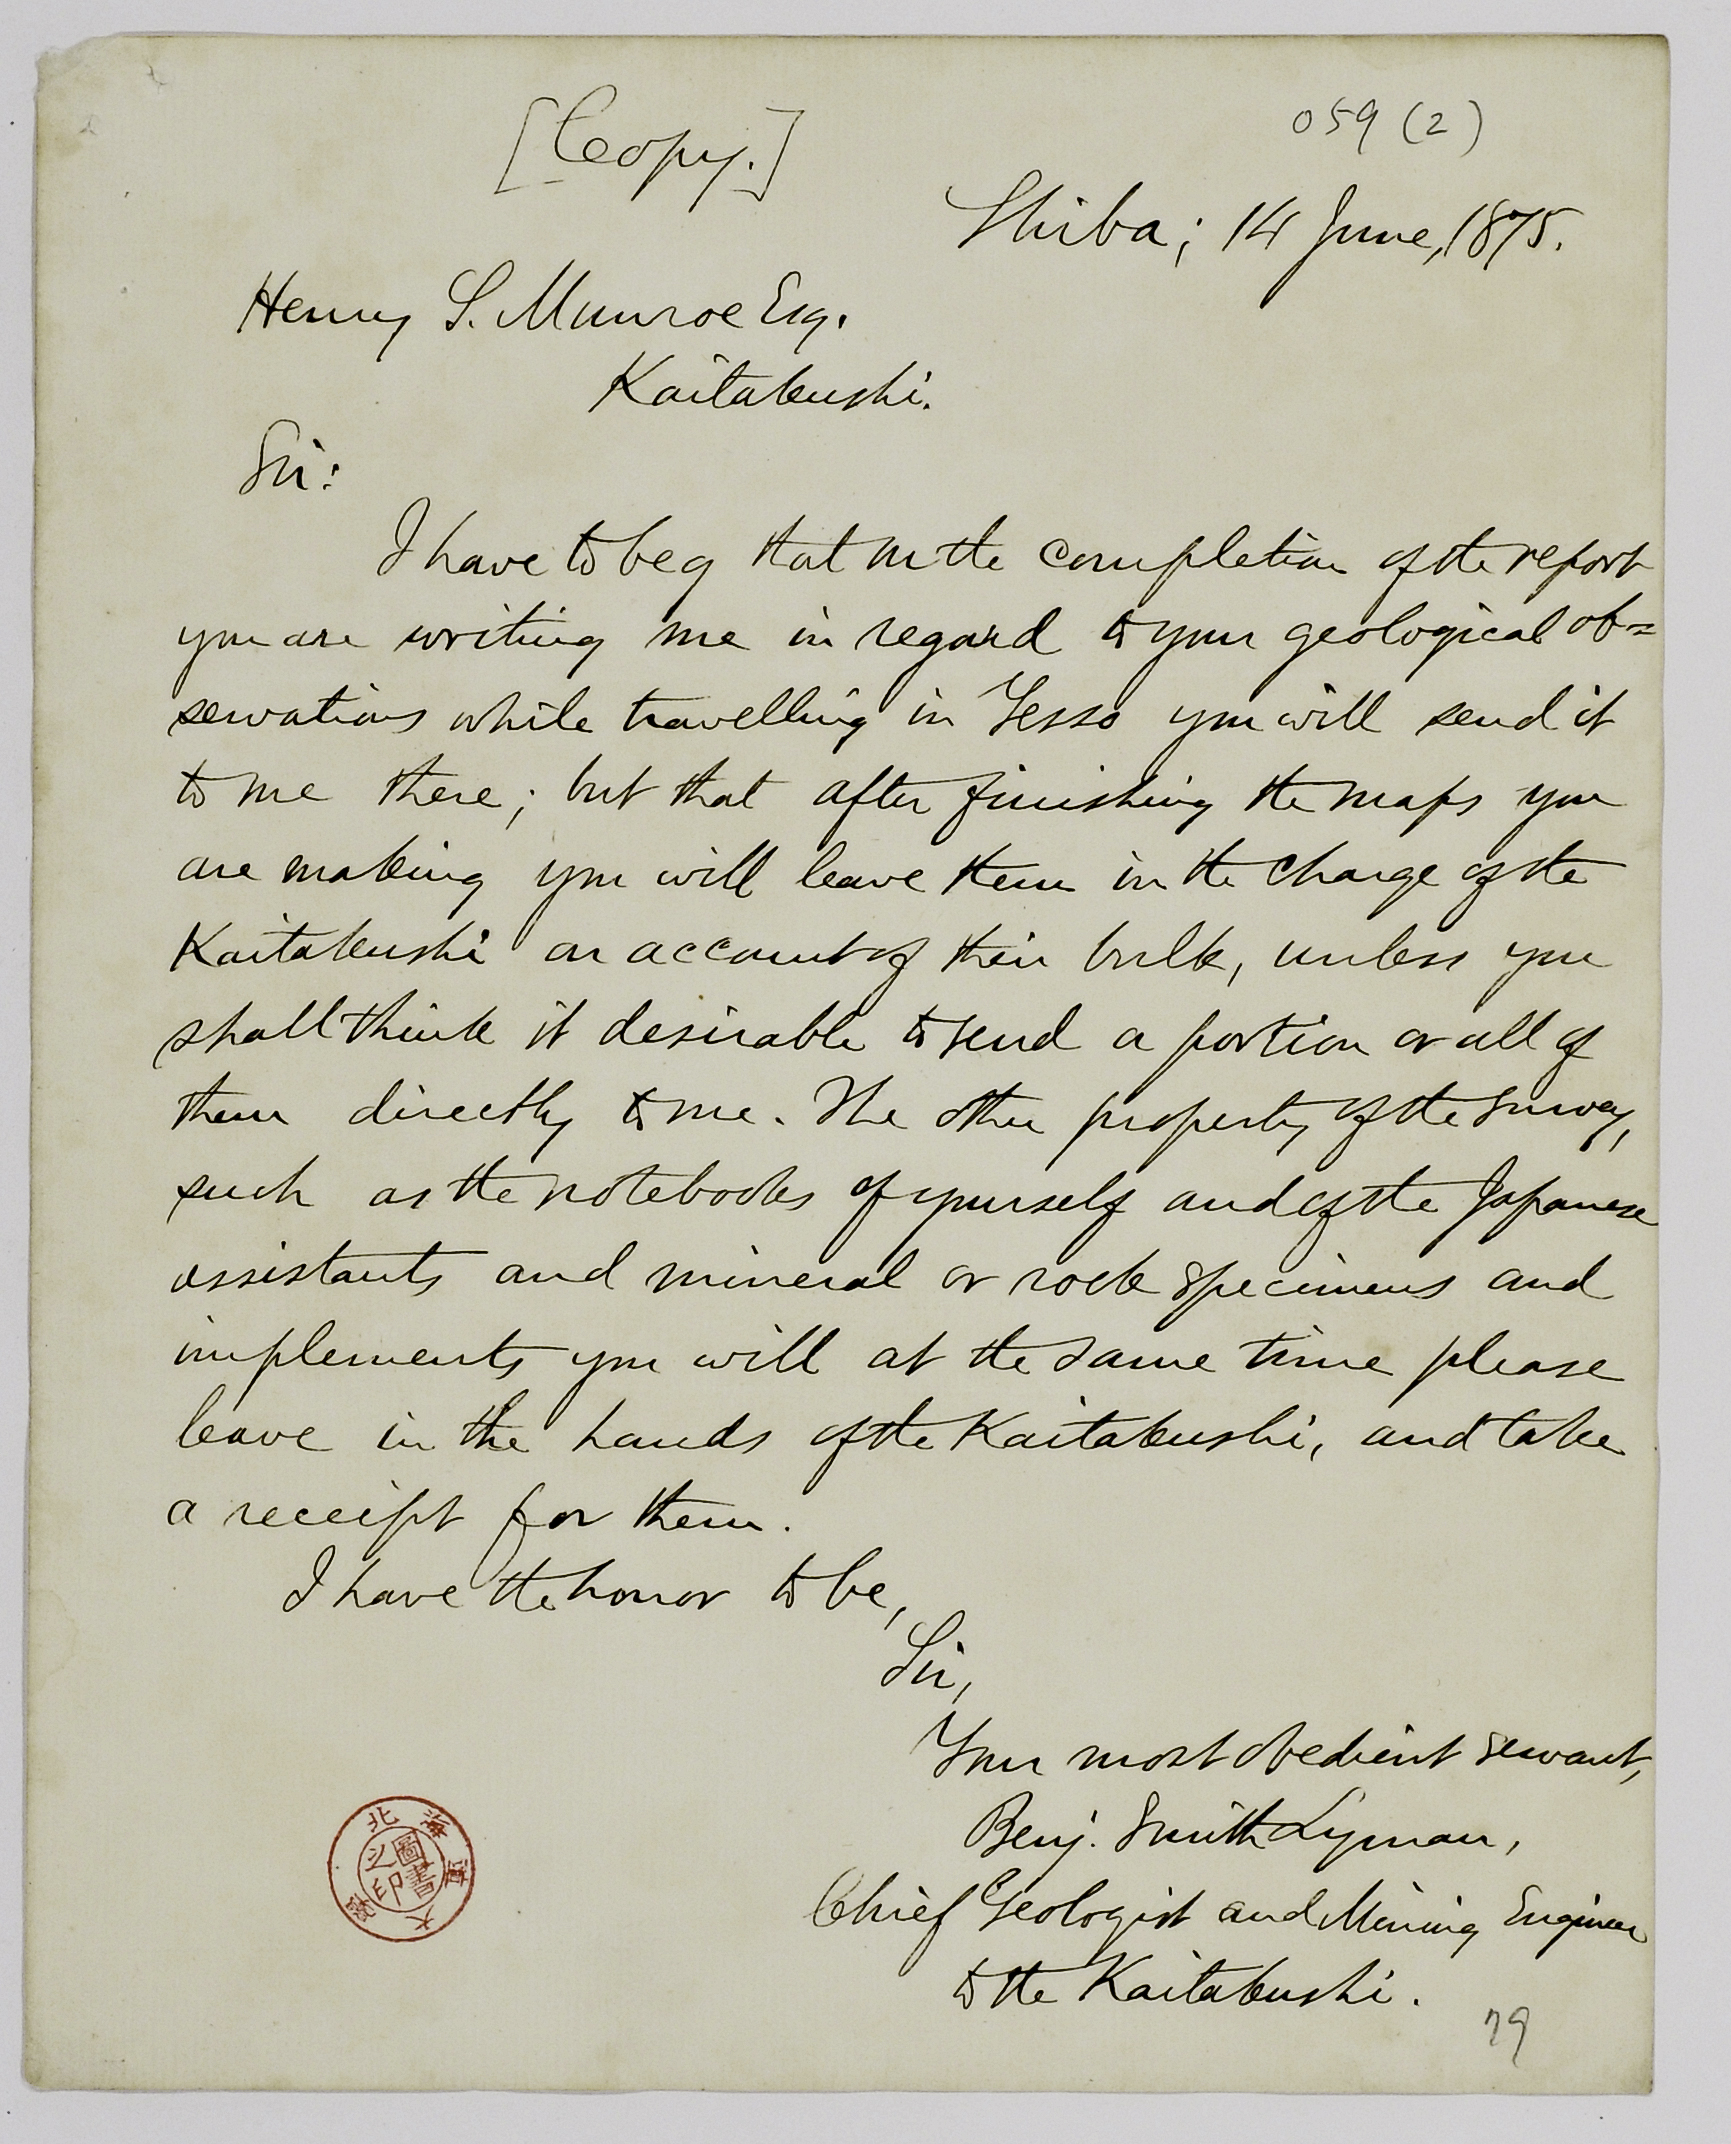 [Copy.]
059 (2)
Shiba; 14 June, 1875.
Henry S. Munroe Esq.
Kaitakushi.
Sir:
I have to beg that on the completion of the report
you are writing me in regard to your geological ob=
servations while travelling in Yesso you will send it
to me there; but that after finishing the maps you
are making you will leave them in the charge of the
Kaitakushi on account of their bulk, unless you
shall think it desirable to send a portion or all of
them directly to me. The other property of the Survey,
such as the notebooks of yourself and of the Japanese
assistants and mineral or rock specimens and
implements you will at the same time please
leave in the hands of the Kaitakushi, and take
a receipt for them.
I have the honor to be,
Sir,
Your most obedient servant,
Benj. Smith Lyman,
Chief Geologist and Mining Engineer
to the Kaitakushi.
79
北海道大學
圖書之印